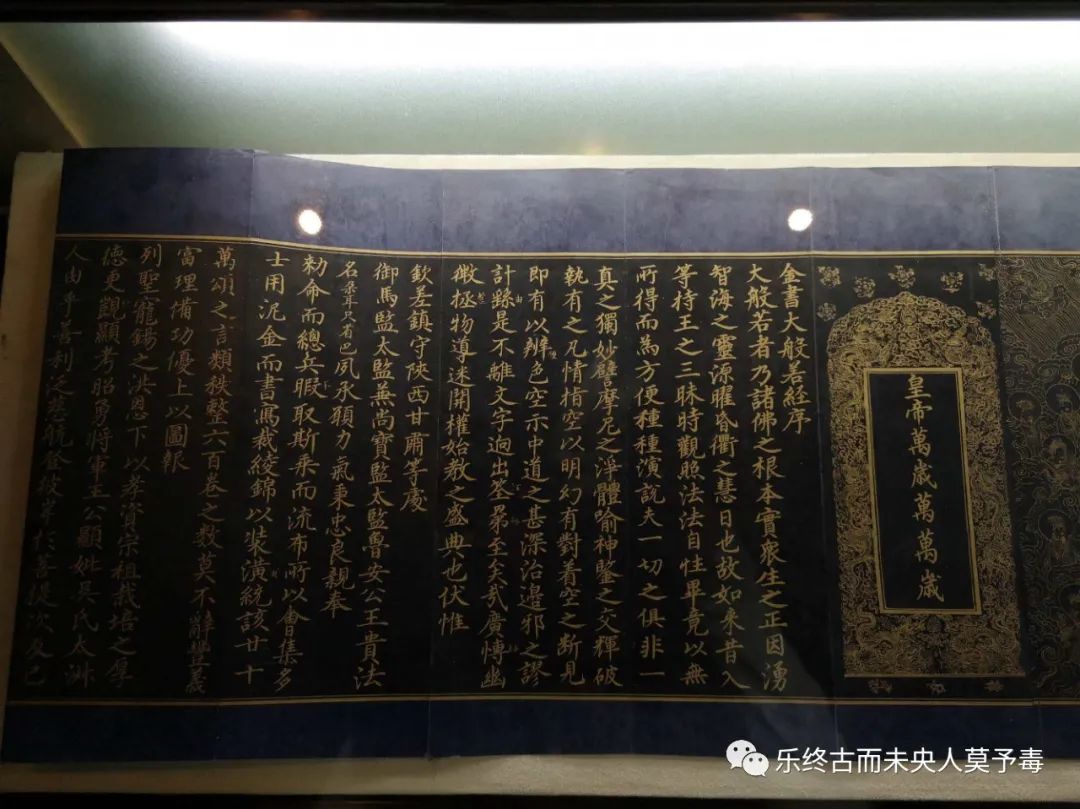 皇帝萬歲萬萬歲
金書大般若經序
大般若者乃諸佛之根本實衆生之正因湧
智海之靈源曜昏衢之慧日也故如来昔入
等持王之三昧時觀照法法自性畢竟以無
所得而為方便種種演說夫一切之俱非一
真之獨妙譬摩尼之淨體喻神鑒之交輝破
執有之凡情情空以明幻有對着空之斷見
即有以辨色空示中道之甚深治邊邪之謬
計繇是不離文字逈出筌罤至矣哉廣慱幽
微極物導迷開權始教之盛典也伏惟
欽差鎮守陝西甘肅等處
御馬監太監兼尚寶監太監魯安公王貴法
名朶耳只省巴夙承願力氣秉忠良親奉
勑命而總兵暇取斯乗而流布所以會集多
士用泥金而書寫裁綾錦以裝潢統該廿十
萬頌之言類秩整六百卷之數莫不辭豐義
富理備功優上以圖報
列聖寵錫之洪恩下以孝資宗祖栽培之厚
德更覬顯考昭勇將軍王公顯妣吳氏太淋
人由乎善利泛慈航登彼岸於菩提次及己
乐终古而未央人莫予毒